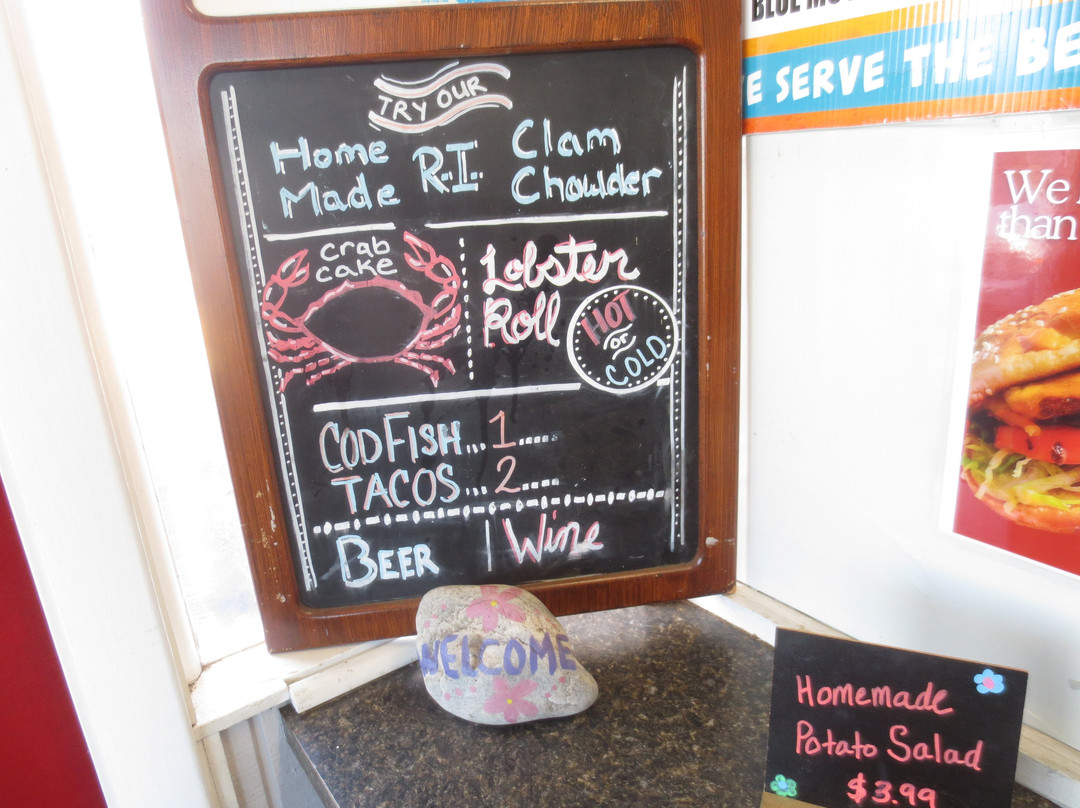 TRY OUR
Home Made R.I. Clam Chowder
crab
cake
Lobster
Roll
HOT
or
COLD
CODFISH...1.....
TACOS...2.....
BEER | Wine
WELCOME
BLUE
SERVE THE
We
than
Homemade
Potato Salad
$3.99